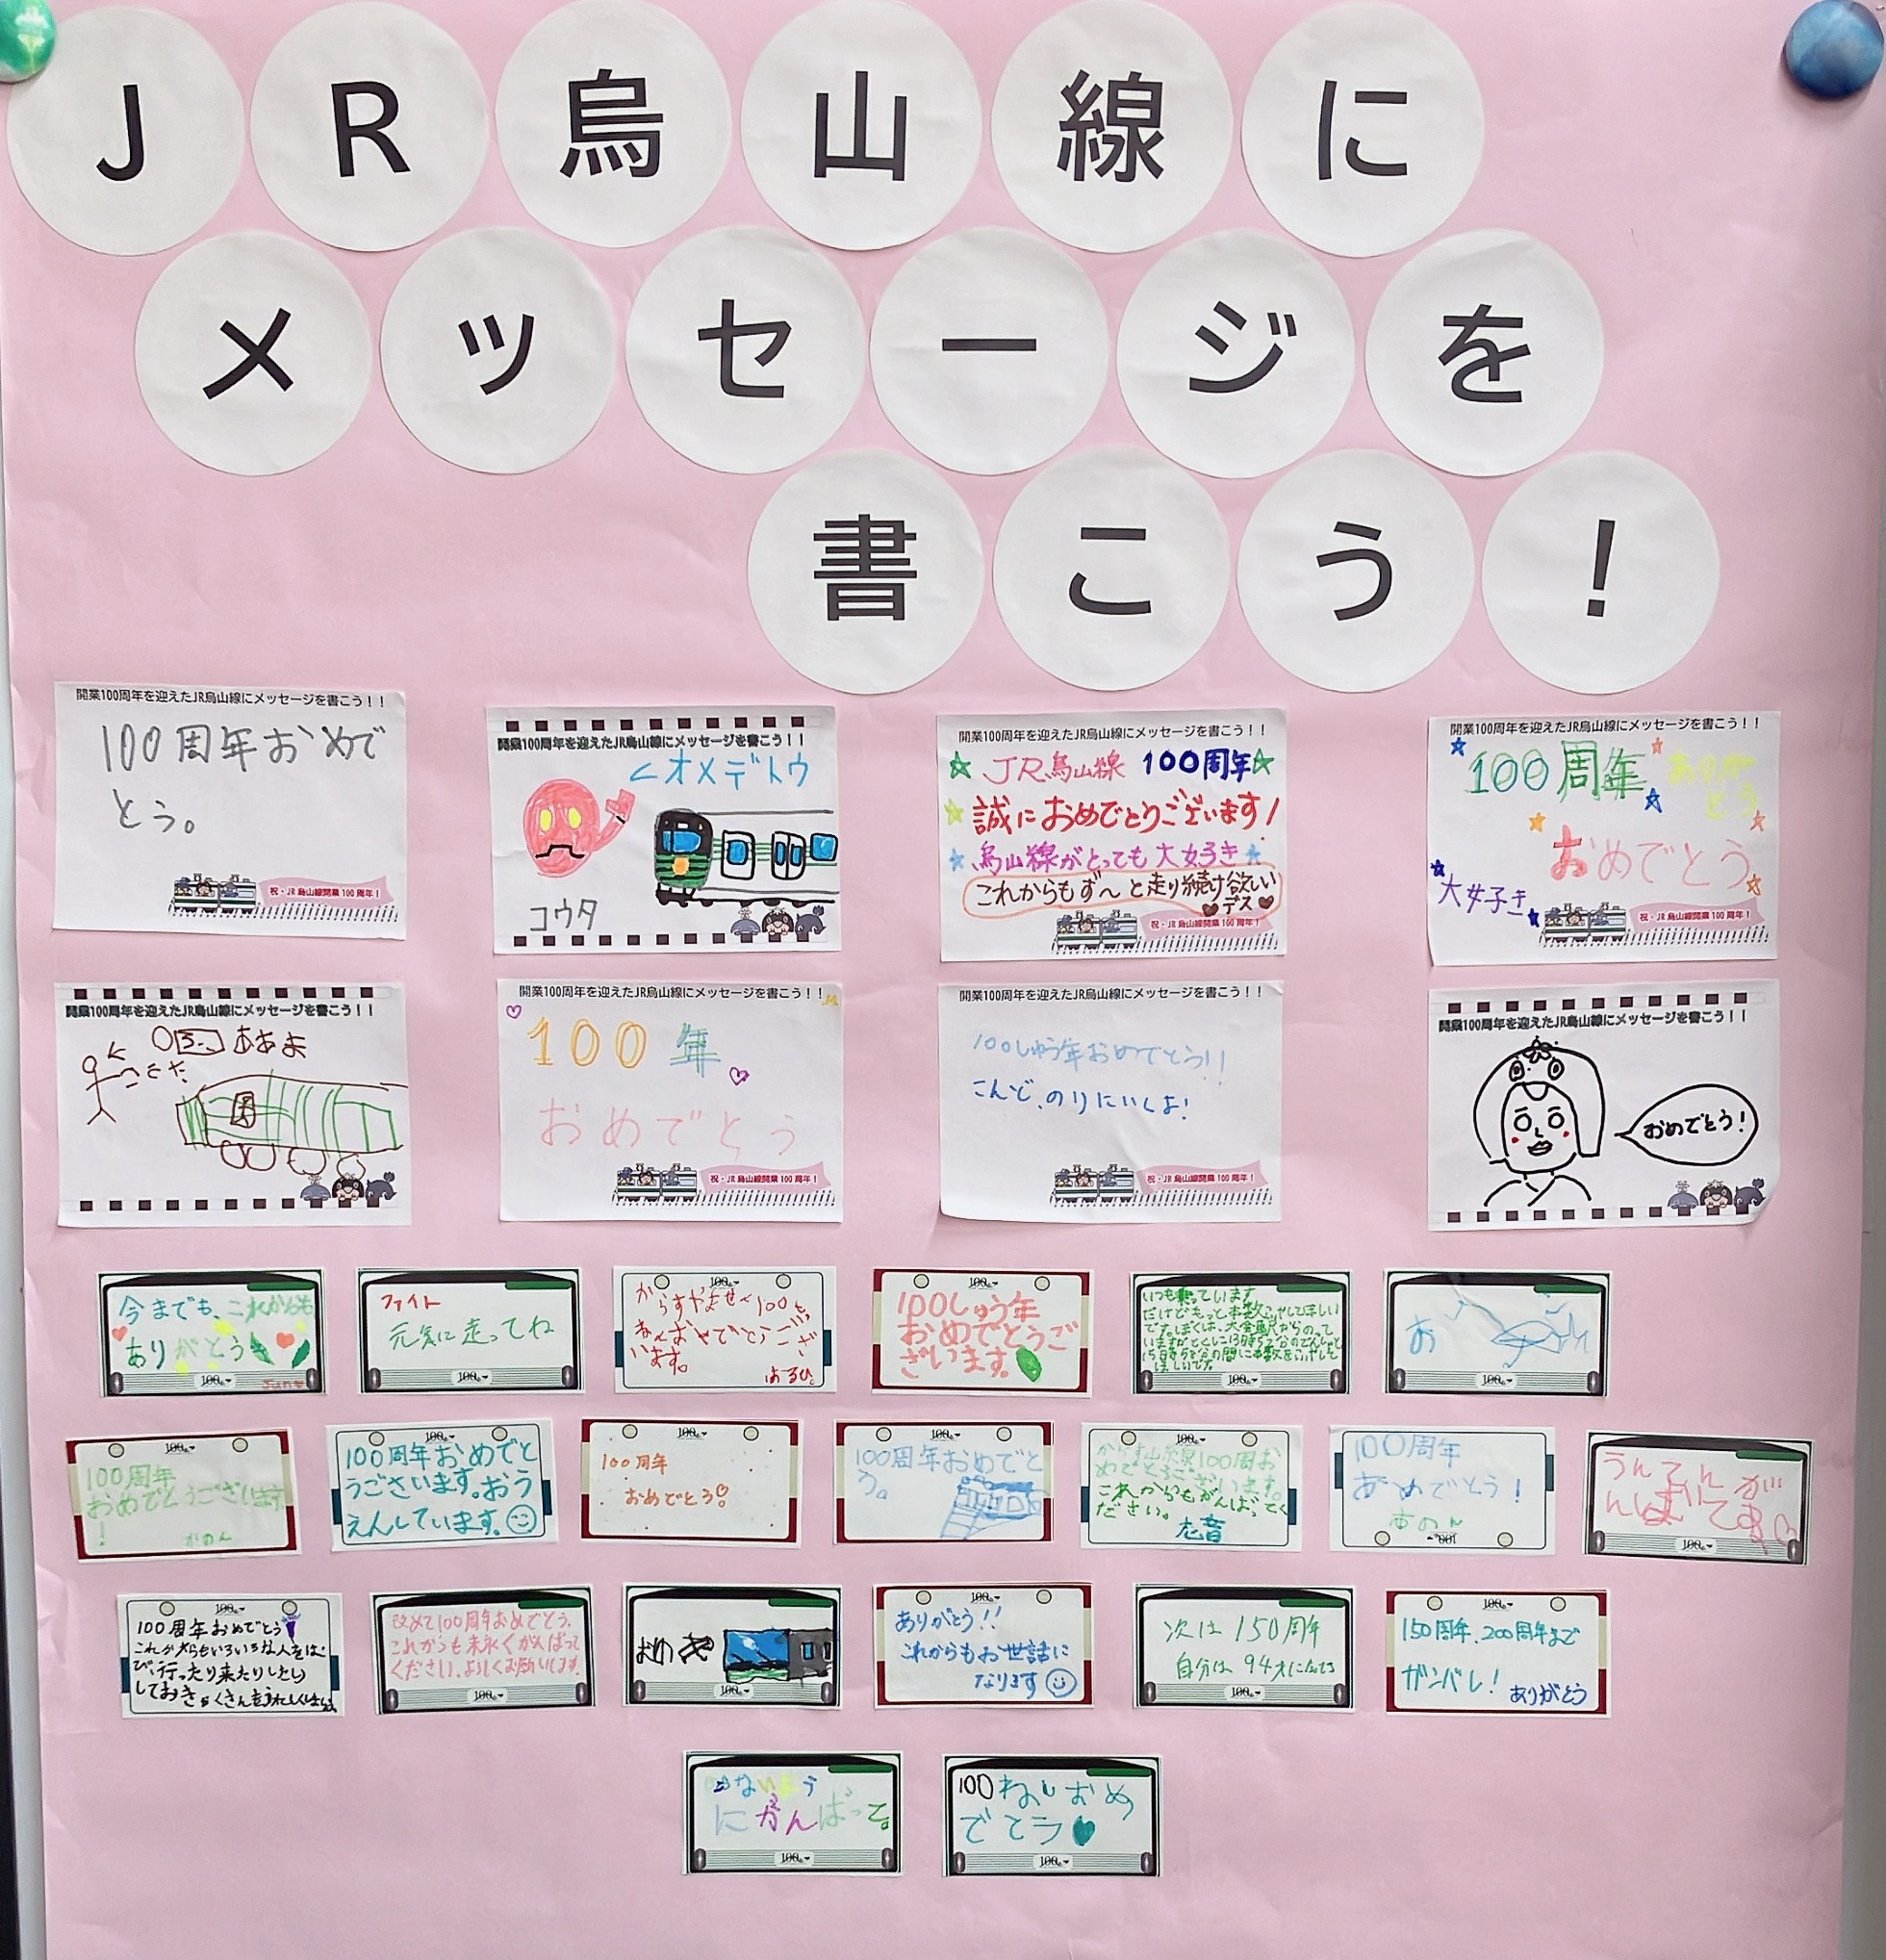 JR烏山線に
メッセージを
書こう！
開業100周年を迎えたJR烏山線にメッセージを書こう！！
100周年おめで
とう。
祝・JR烏山線開業100周年！
開業100周年を迎えたJR烏山線にメッセージを書こう！！
オメデトウ
コウタ
開業100周年を迎えたJR烏山線にメッセージを書こう！！
JR烏山線 100周年
誠におめでとうございます！
烏山線がとっても大好き
これからもず〜と走り続け欲しい
デス
祝・JR烏山線開業100周年！
開業100周年を迎えたJR烏山線にメッセージを書こう！！
100周年
ありが
とう
おめでとう
大好き
祝・JR烏山線開業100周年！
開業100周年を迎えたJR烏山線にメッセージを書こう！！
開業100周年を迎えたJR烏山線にメッセージを書こう！！
100年
おめでとう
祝・JR烏山線開業100周年！
開業100周年を迎えたJR烏山線にメッセージを書こう！！
100しゅう年おめでとう!!
こんど、のりにいくよ!
祝・JR烏山線開業100周年！
開業100周年を迎えたJR烏山線にメッセージを書こう！！
おめでとう!
今までも、これからも
ありがとう
ファイト
元気に走ってね
います。
はるひ
100しゅう年
おめでとうご
ざいます。
いつも乗っています
だけどもっと本数ふやしてほしい
です。ぼくは、大金駅からのって
お
100周年
おめでとうございます
!
かのん
100周年おめでと
うございます。おう
えんしています。
100周年
おめでとう!
100周年おめでと
う。
からす山線100周お
めでとうございます。
これからもがんばってく
ださい。
100周年
おめでとう!
100周年おめでとう
これからもいろいろな人をはこ
び、行ったり来たりしたり
しておきゃくさんを
改めて100周年おめでとう。
これからも末永くがんばって
ください。よろしくお願いします。
ありがとう!!
これからもお世話に
なります
次は150周年
自分は94才になってる
150周年、200周年まで
ガンバレ!
ありがとう
にがんばって。
100ねんおめ
でとう